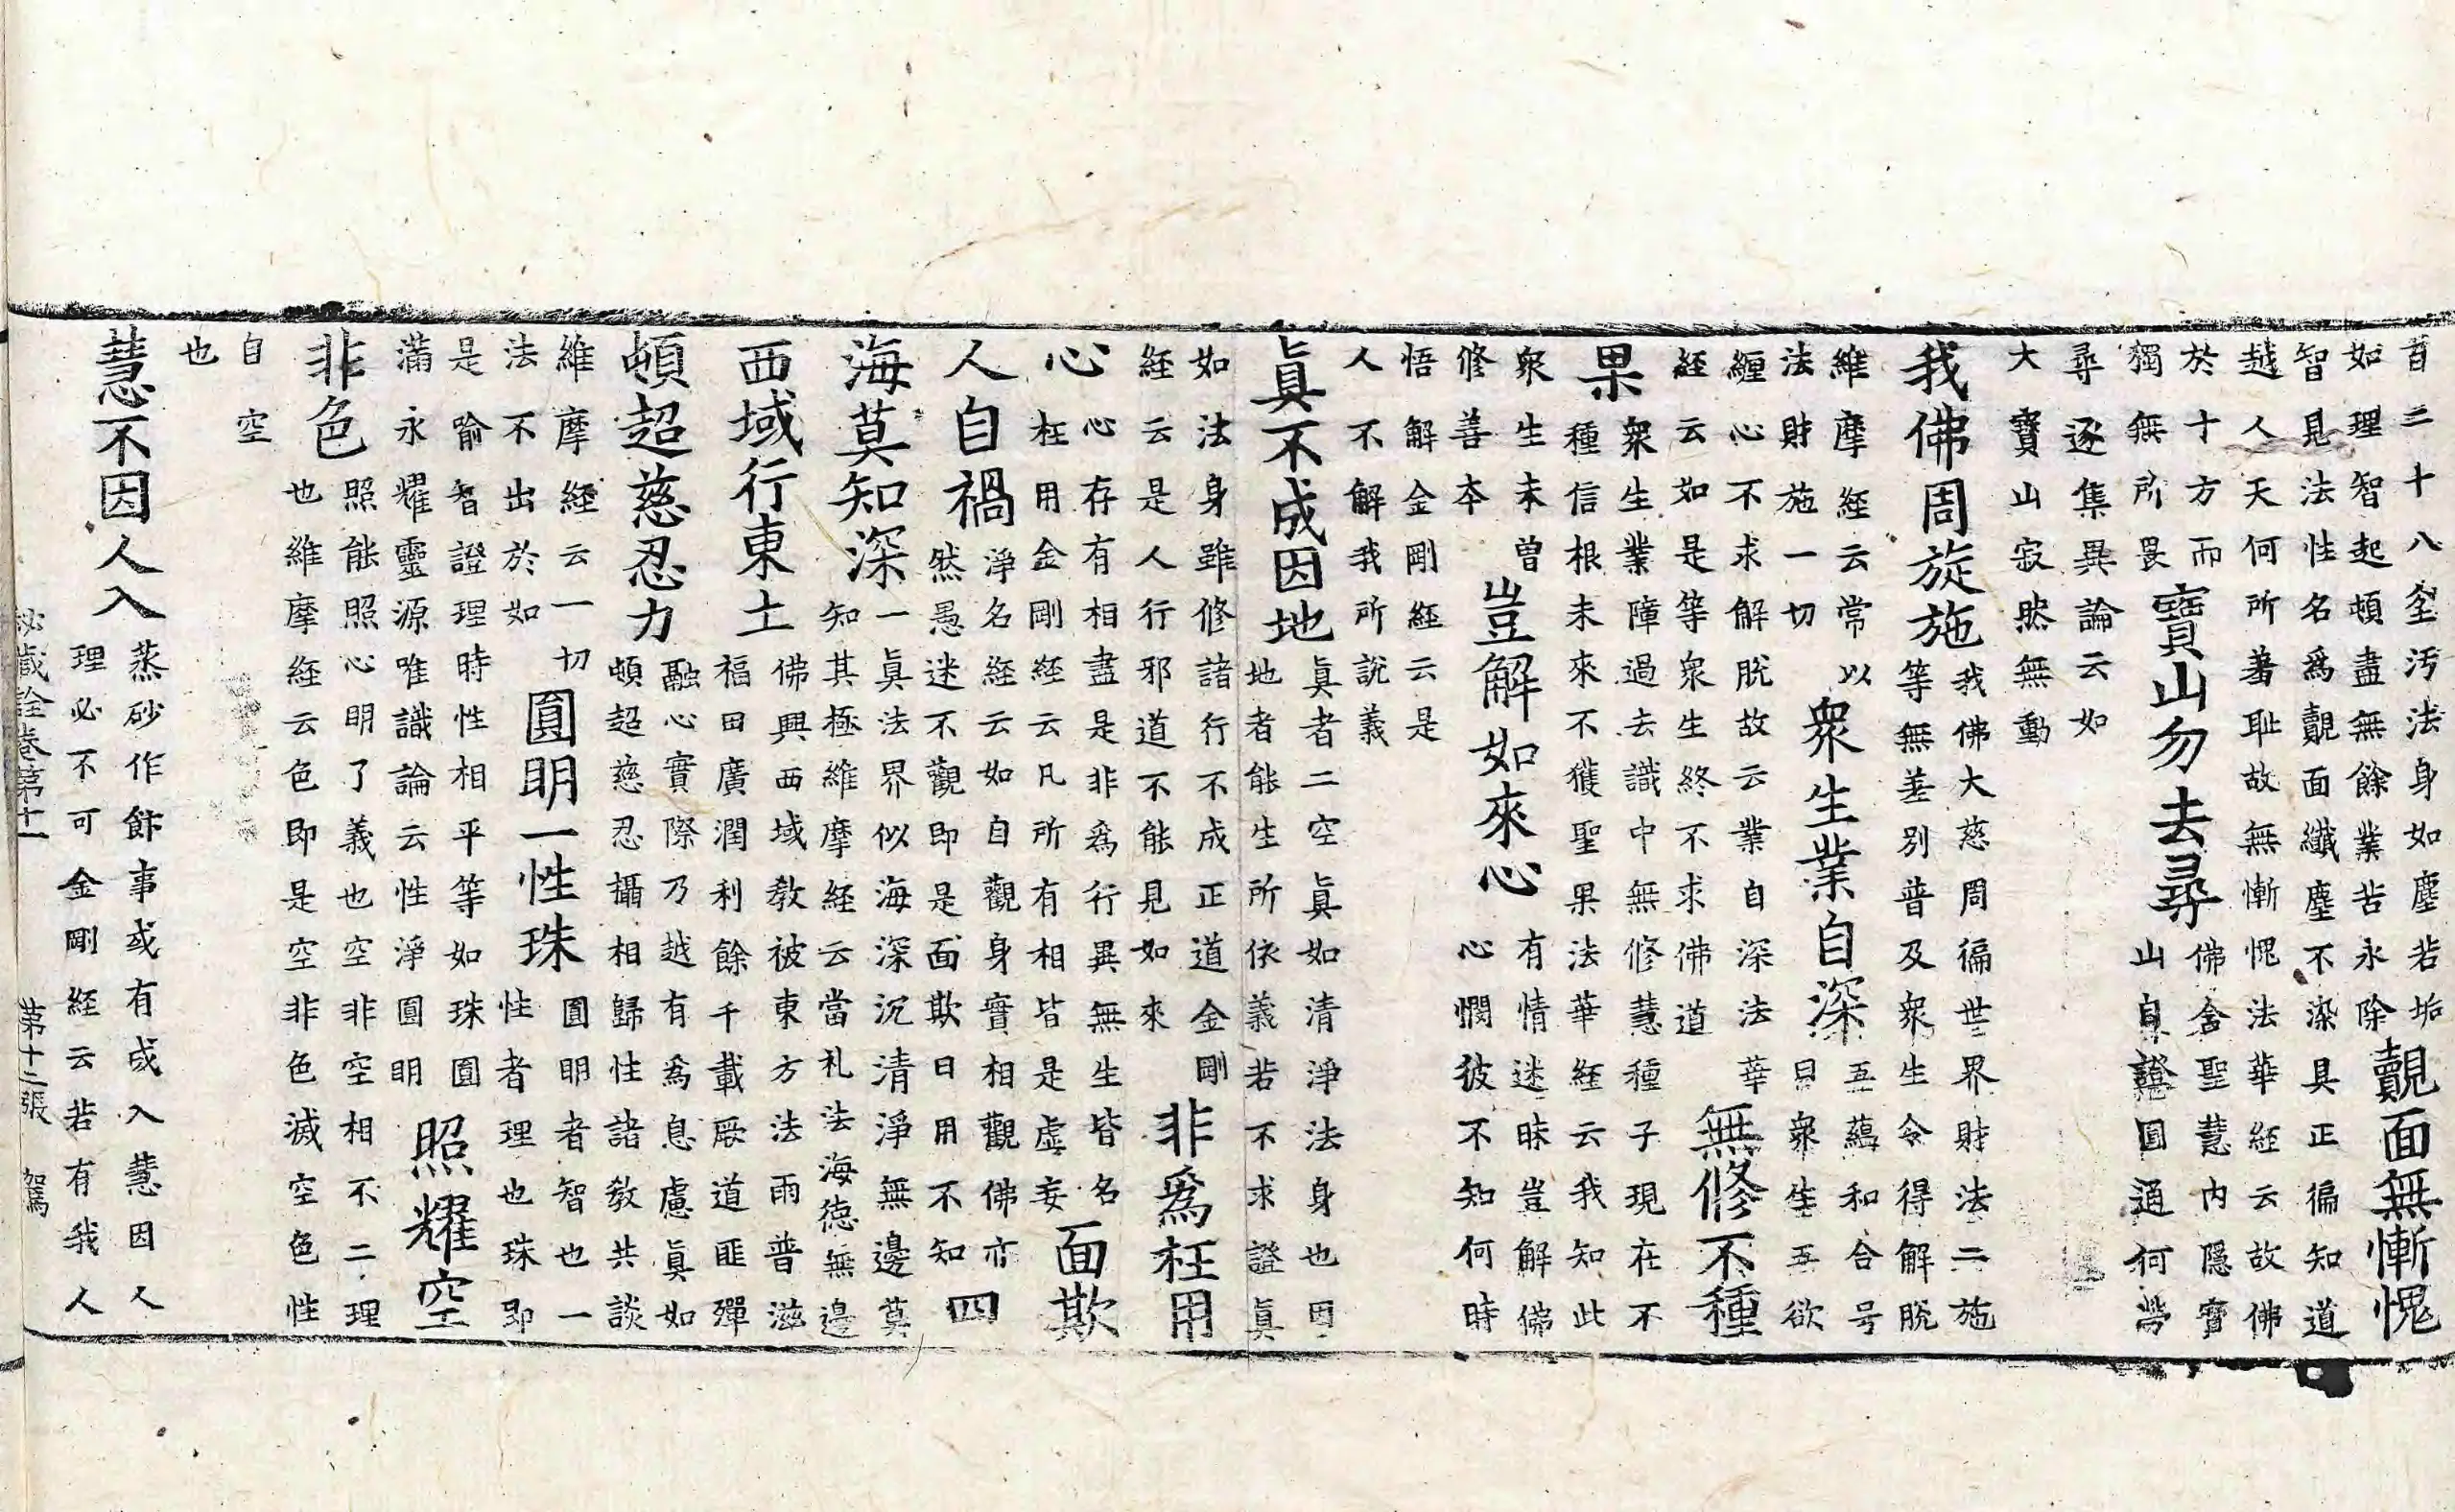 百三十八　汚法身如塵若垢
如理智起頓盡無餘業苦永除
覿面無慚愧
智見法性名爲覿面纖塵不染具正徧知道
越人天何所著耻故無慚愧法華経云故佛
於十方而
獨無所畏
寶山勿去尋
佛含聖慧内隱寶
山自證圓通何勞
尋逐集異論云如
大寶山寂然無動
我佛周旋施
我佛大慈周徧世界財法二施
等無差別普及衆生令得解脫
維摩経云常以
法財施一切
衆生業自深
五蘊和合号
曰衆生五欲
纏心不求解脫故云業自深法華
経云如是等衆生終不求佛道
無修不種
果
衆生業障過去識中無修慧種子現在不
種信根未來不獲聖果法華経云我知此
衆生未曾
修善本
豈解如來心
有情迷昧豈解佛
心憫彼不知何時
悟解金剛経云是
人不解我所說義
眞不成因地
眞者二空眞如清淨法身也因
地者能生所依義若不求證眞
如法身雖修諸行不成正道金剛
経云是人行邪道不能見如來
非爲枉用
心
心存有相盡是非爲行異無生皆名
枉用金剛経云凡所有相皆是虛妄
面欺
人自禍
淨名経云如自觀身實相觀佛亦
然愚迷不觀即是面欺日用不知
四
海莫知深
一眞法界似海深沉清淨無邊莫
知其極維摩経云當礼法海徳無邊
西域行東土
佛興西域教被東方法雨普滋
福田廣潤利餘千載厥道匪殫
頓超慈忍力
融心實際乃越有爲息慮眞如
頓超慈忍攝相歸性諸教共談
維摩経云一切
法不出於如
圓明一性珠
圓明者智也一
性者理也珠即
是喩智證理時性相平等如珠圓
滿永耀靈源唯識論云性淨圓明
照耀空
非色
照能照心明了義也空非空相不二理
也維摩経云色即是空非色滅空色性
自空
也
慧不因人入
蒸砂作餅事或有成入慧因人
理必不可金剛経云若有我人
祕藏詮卷第十一　第十二張　駕